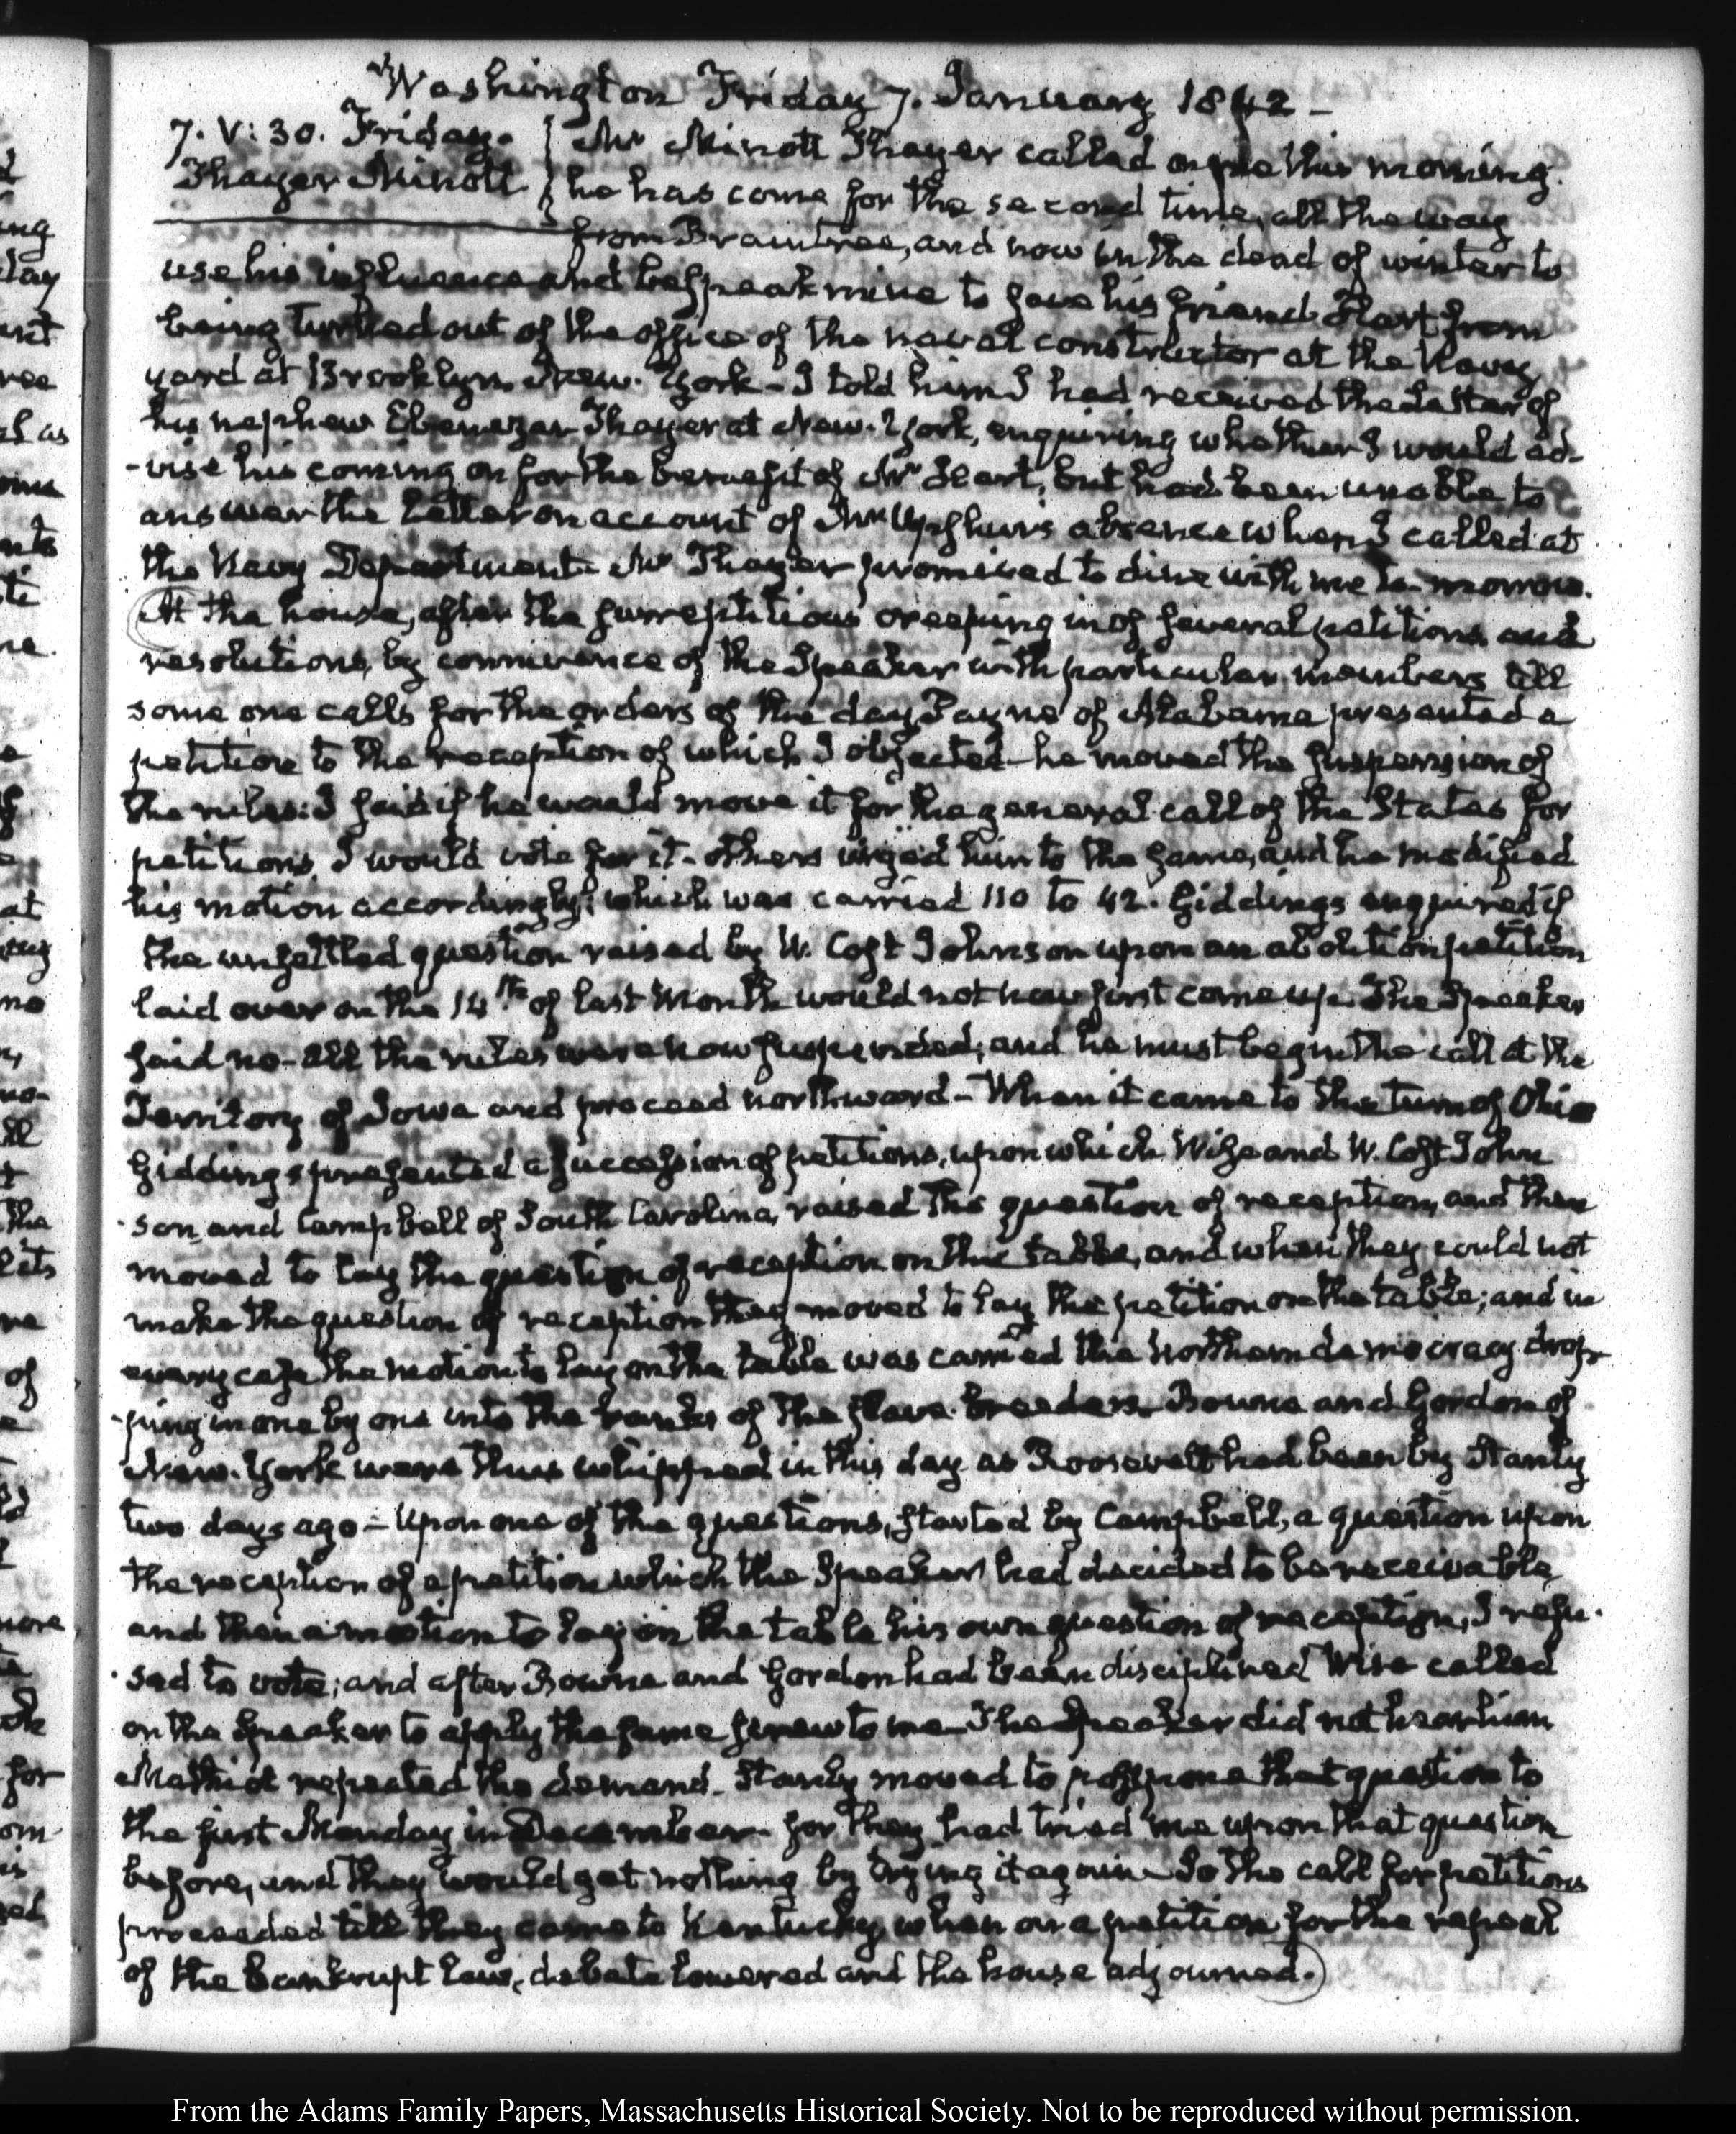 Washington Friday 7. January 1842 –
7. V: 30. Friday.
Thayer Minott
Mr Minott Thayer called on me this morning.
he has come for the second time, all the way
from Braintree, and now in the dead of winter to
use his influence and bespeak mine to save his friend Hart from
being turned out of the office of the naval constructor at the Navy
yard at Brooklyn New-York – I told him I had received the Letter of
his nephew Ebenezer Thayer at New-York, enquiring whether I would ad-
-vise his coming on for the benefit of Mr Hart, but had been unable to
answer the Letter on account of Mr Upshur's absence when I called at
the Navy Department – Mr Thayer promised to dine with me to-morrow.
At the house, after the surreptitious creeping in of several petitions and
resolutions, by connivance of the Speaker with particular members till
some one calls for the orders of the day, Payne of Alabama presented a
petition to the reception of which I objected – he moved the suspension of
the rules: I said if he would move it for the general call of the States for
petitions, I would vote for it – others urged him to the same, and he modified
his motion accordingly; which was carried 110 to 42. Giddings enquired if
the unsettled question raised by W. Cost Johnson upon an abolition petition
laid over on the 14th of last Month would not now first come up. The Speaker
said no – all the rules were now suspended, and he must begin the call at the
Territory of Iowa and proceed northward – When it came to the turn of Ohio
Giddings presented a succession of petitions, upon which Wise and W. Cost John
-son, and Campbell of South Carolina, raised the question of reception, and then
moved to lay the question of reception on the table, and when they could not
make the question of reception they moved to lay the petition on the table; and in
every case the motion to lay on the table was carried the northern democracy drop-
-ping in one by one into the ranks of the slave-breeders. Bowne and Gordon of
New-York were thus whipped in this day as Roosevelt had been by Stanly
two days ago – Upon one of the questions, started by Campbell, a question upon
the reception of a petition which the Speaker had decided to be receivable,
and then a motion to lay on the table his own question of reception, I refu-
-sed to vote; and after Bowne and Gordon had been disciplined Wise called
on the Speaker to apply the same screw to me – The Speaker did not hear him
Mathiot repeated the demand – Stanly moved to postpone that question to
the first Monday in December – for they had tried me upon that question
before, and they would get nothing by trying it again – So the call for petitions
proceeded till they came to Kentucky, when on a petition for the repeal
of the bankrupt Law, debate lowered and the house adjourned.
From the Adams Family Papers, Massachusetts Historical Society. Not to be reproduced without permission.